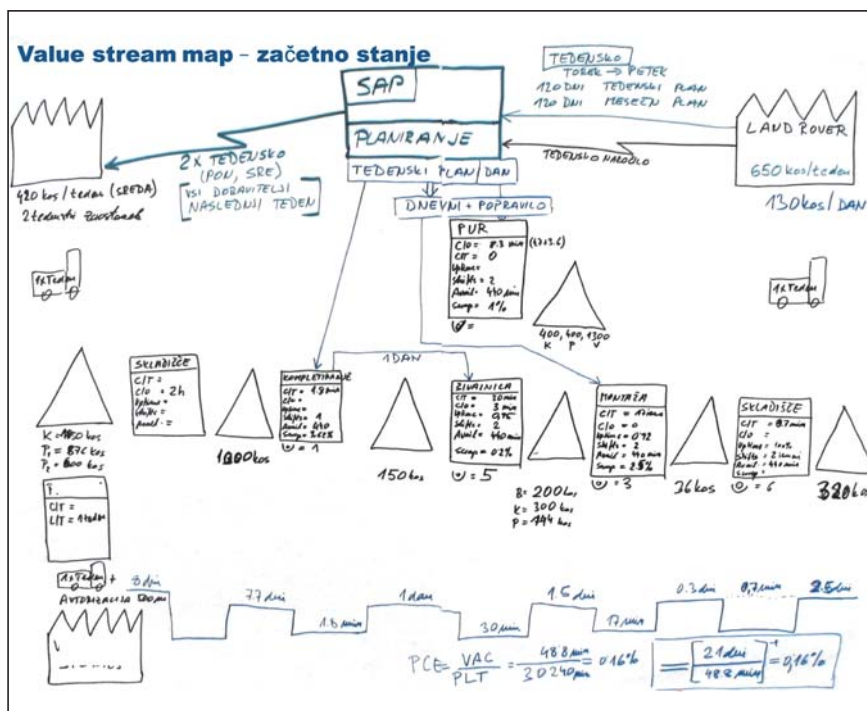 Value stream map – začetno stanje
SAP
PLANIRANJE
TEDENSKI PLAN/DAN
DNEVNI + POPRAVILO
TEDENSKO
TOREK → PETEK
120 DNI TEDENSKI PLAN
120 DNI MESEČN PLAN
LAND ROVER
650 kos/teden
130 kos/DAN
TEDENSKO NAROČILO
2x TEDENSKO
(PON, SRE)
VSI DOBAVITELJI
NASLEDNJI TEDEN
420 kos/teden (SREDA)
2 tedenski zaostanek
1xTeden
1xTeden
PUR
C/O = 8.3 min
C/T = 0
Uptime=
Shifts = 2
Avail = 440 min
Scrap = 1%
400, 400, 1300
K P V
1 DAN
SKLADIŠČE
C/T =
C/O = 2h
Uptime =
Shifts =
Avail =
1000 kos
KOMPLETIRANJE
C/T = 1.8 min
C/O =
Uptime=
Shifts 1
Avail = 440
= 1
150 kos
ŠIVALNICA
C/T = 30 min
C/O = 3 min
Uptime = 0,95
Shifts = 2
Avail = 440 min
Scrap = 0.2%
= 5
B = 200 kos
K = 300 kos
P = 144 kos
MONTAŽA
C/T = 17 min
C/O = 0
Uptime = 0.92
Shifts = 2
Avail = 440 min
Scrap = 2.5%
= 3
36 kos
SKLADIŠČE
C/T = 0.7 min
C/O =
Uptime = 100%
Avail = 440 min
Scrap =
= 6
320 kos
P1 = 876 kos
P2 = 800 kos
C/T =
L/T = 1 teden
1xTeden +
8 dni
7.7 dni
1.8 min
1 dan
30 min
1.5 dni
17 min
0.3 dni
0,7 min
2.5 dni
PCE = VAC / PLT = 48.8 / 30240 min = 0,16%
= [21 dni / 48.8 min]⁻¹ = 0,16%